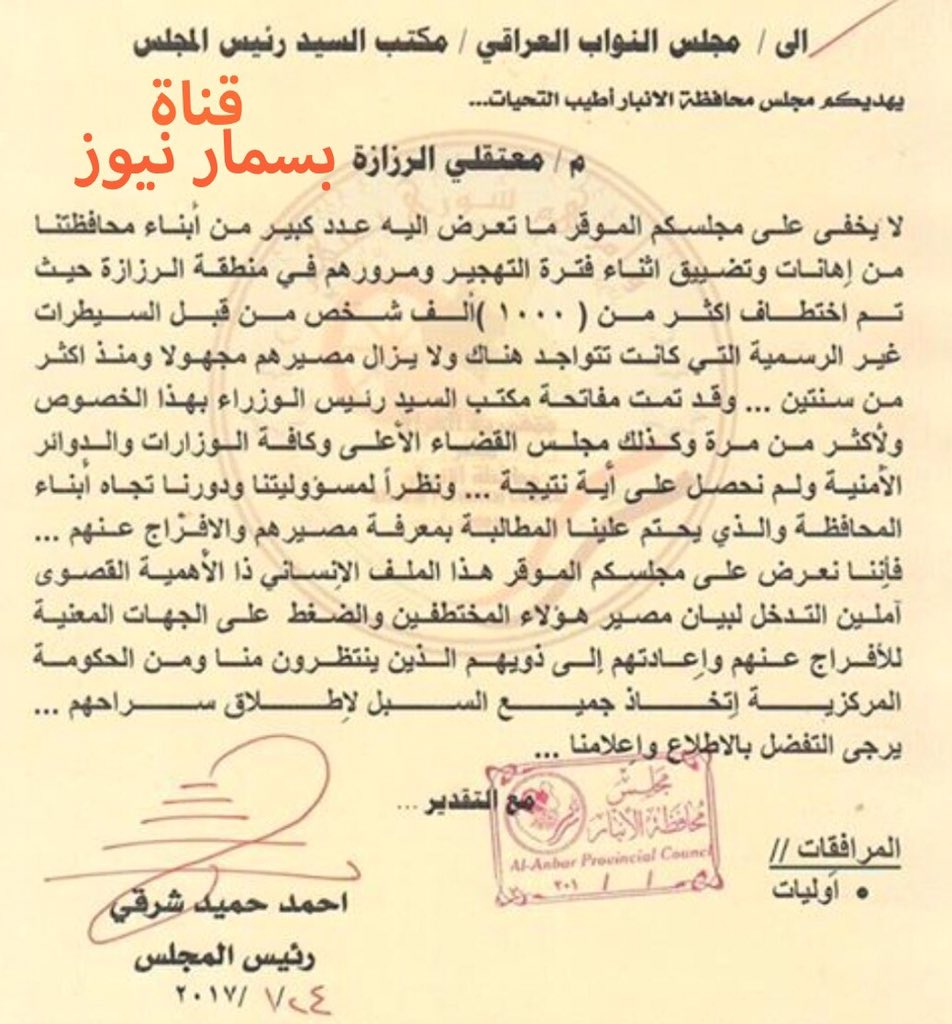 الى / مجلس النواب العراقي / مكتب السيد رئيس المجلس
يهديكم مجلس محافظة الانبار أطيب التحيات...
قناة
بسمار نيوز
م / معتقلي الرزازة
لا يخفى على مجلسكم الموقر ما تعرض اليه عدد كبير من أبناء محافظتنا
من إهانات وتضييق اثناء فترة التهجير ومرورهم في منطقة الرزازة حيث
تم اختطاف اكثر من ( ١٠٠٠ )ألف شخص من قبل السيطرات
غير الرسمية التي كانت تتواجد هناك ولا يزال مصيرهم مجهولا ومنذ اكثر
من سنتين ... وقد تمت مفاتحة مكتب السيد رئيس الوزراء بهذا الخصوص
ولأكثر من مرة وكذلك مجلس القضاء الأعلى وكافة الوزارات والدوائر
الأمنية ولم نحصل على أية نتيجة ... ونظراً لمسؤوليتنا ودورنا تجاه أبناء
المحافظة والذي يحتم علينا المطالبة بمعرفة مصيرهم والافراج عنهم ...
فأننا نعرض على مجلسكم الموقر هذا الملف الإنساني ذا الأهمية القصوى
آملين التدخل لبيان مصير هؤلاء المختطفين والضغط على الجهات المعنية
للأفراج عنهم وإعادتهم إلى ذويهم الذين ينتظرون منا ومن الحكومة
المركزية إتخاذ جميع السبل لإطلاق سراحهم ...
يرجى التفضل بالاطلاع وإعلامنا ...
مع التقدير ...
مجلس
محافظة الانبار
Al-Anbar Provincial Council
٢٠١ / /
المرافقات //
• أوليات
احمد حميد شرقي
رئيس المجلس
٢٤/ ٧ /٢٠١٧